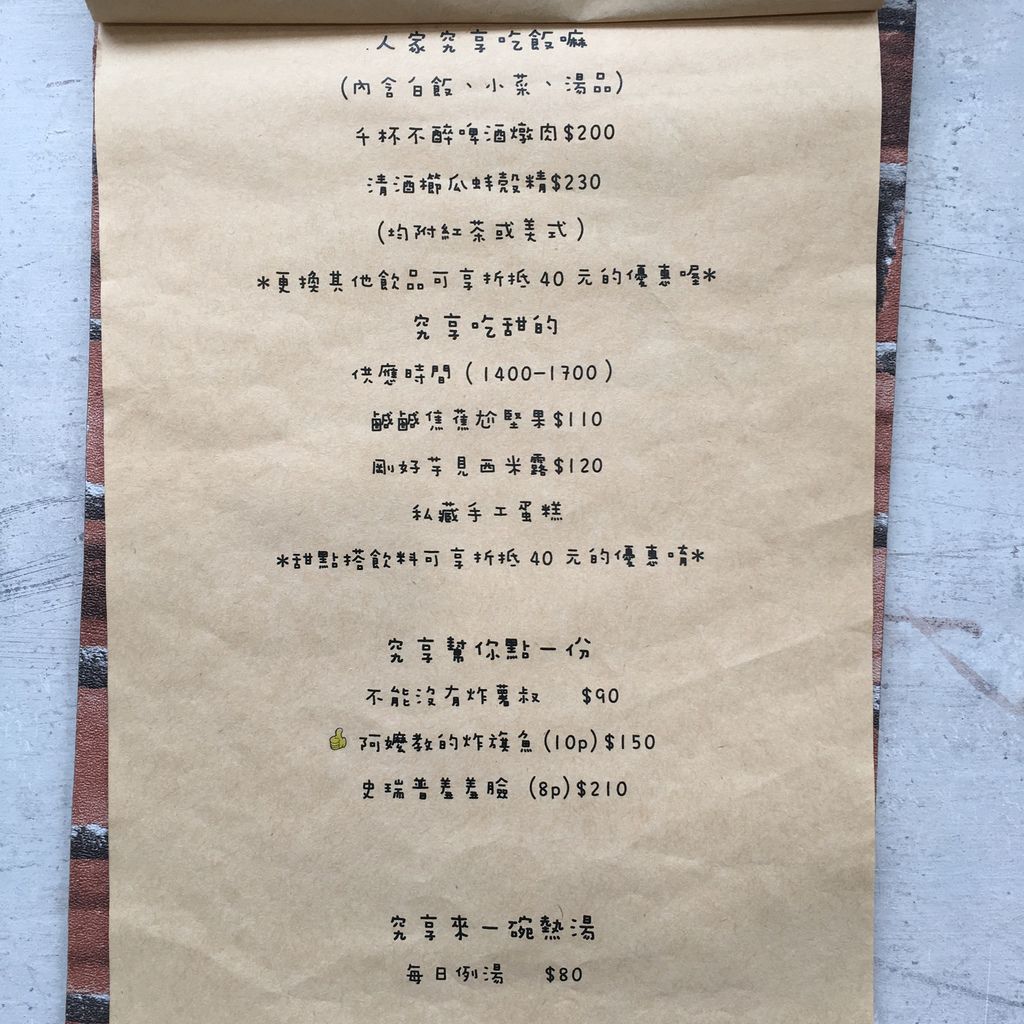 人家究享吃飯嘛
(內含白飯、小菜、湯品)
千杯不醉啤酒燉肉$200
清酒櫛瓜蚌殼精$230
(均附紅茶或美式)
*更換其他飲品可享折抵 40 元的優惠喔*
究享吃甜的
供應時間 (1400-1700)
鹹鹹焦蕉尬堅果$110
剛好芋見西米露$120
私藏手工蛋糕
*甜點搭飲料可享折抵 40 元的優惠唷*
究享幫你點一份
不能沒有炸薯叔 $90
👍 阿嬤教的炸旗魚(10p)$150
史瑞普羞羞臉 (8p)$210
究享來一碗熱湯
每日例湯 $80